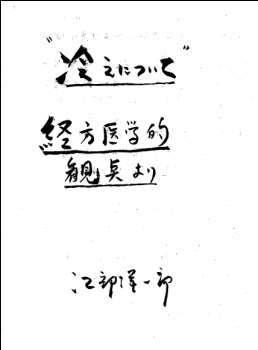 "冷えについて"
経方医学的
観点より
江部洋一郎